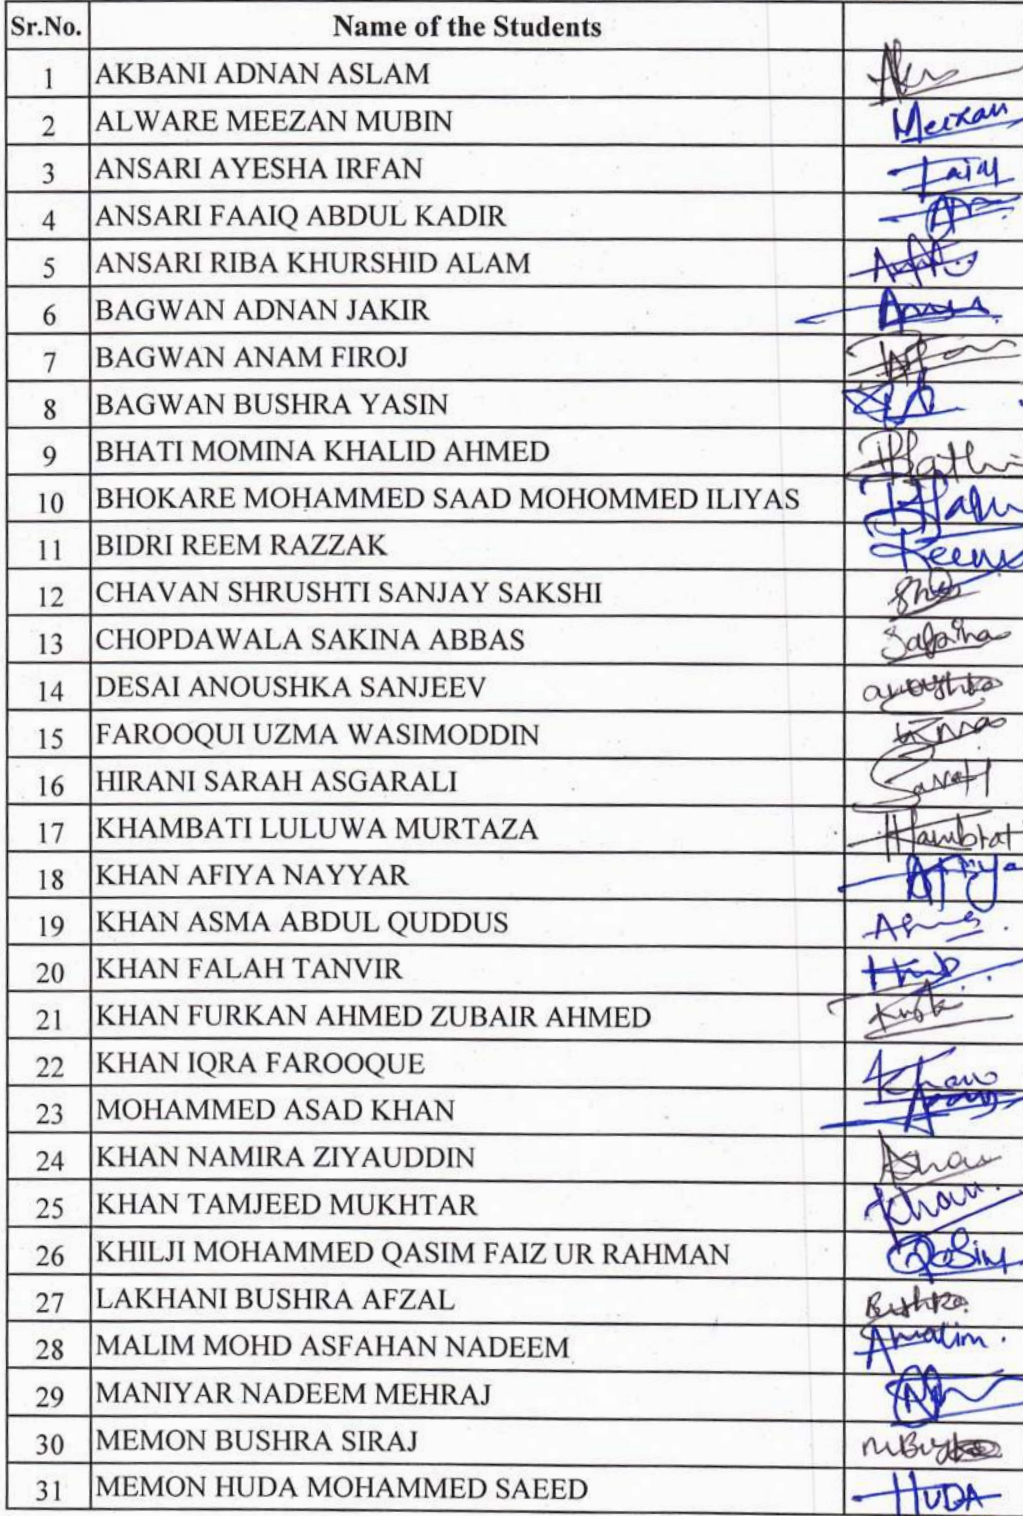 Sr.No. Name of the Students
1 AKBANI ADNAN ASLAM
2 ALWARE MEEZAN MUBIN Meezan
3 ANSARI AYESHA IRFAN
4 ANSARI FAAIQ ABDUL KADIR
5 ANSARI RIBA KHURSHID ALAM
6 BAGWAN ADNAN JAKIR
7 BAGWAN ANAM FIROJ
8 BAGWAN BUSHRA YASIN
9 BHATI MOMINA KHALID AHMED
10 BHOKARE MOHAMMED SAAD MOHOMMED ILIYAS
11 BIDRI REEM RAZZAK
12 CHAVAN SHRUSHTI SANJAY SAKSHI
13 CHOPDAWALA SAKINA ABBAS
14 DESAI ANOUSHKA SANJEEV anoushka
15 FAROOQUI UZMA WASIMODDIN
16 HIRANI SARAH ASGARALI Sarah
17 KHAMBATI LULUWA MURTAZA
18 KHAN AFIYA NAYYAR Afiya
19 KHAN ASMA ABDUL QUDDUS
20 KHAN FALAH TANVIR
21 KHAN FURKAN AHMED ZUBAIR AHMED
22 KHAN IQRA FAROOQUE Khan
23 MOHAMMED ASAD KHAN
24 KHAN NAMIRA ZIYAUDDIN
25 KHAN TAMJEED MUKHTAR Khan.
26 KHILJI MOHAMMED QASIM FAIZ UR RAHMAN Qasim
27 LAKHANI BUSHRA AFZAL Bushra
28 MALIM MOHD ASFAHAN NADEEM Amalim.
29 MANIYAR NADEEM MEHRAJ
30 MEMON BUSHRA SIRAJ
31 MEMON HUDA MOHAMMED SAEED HUDA